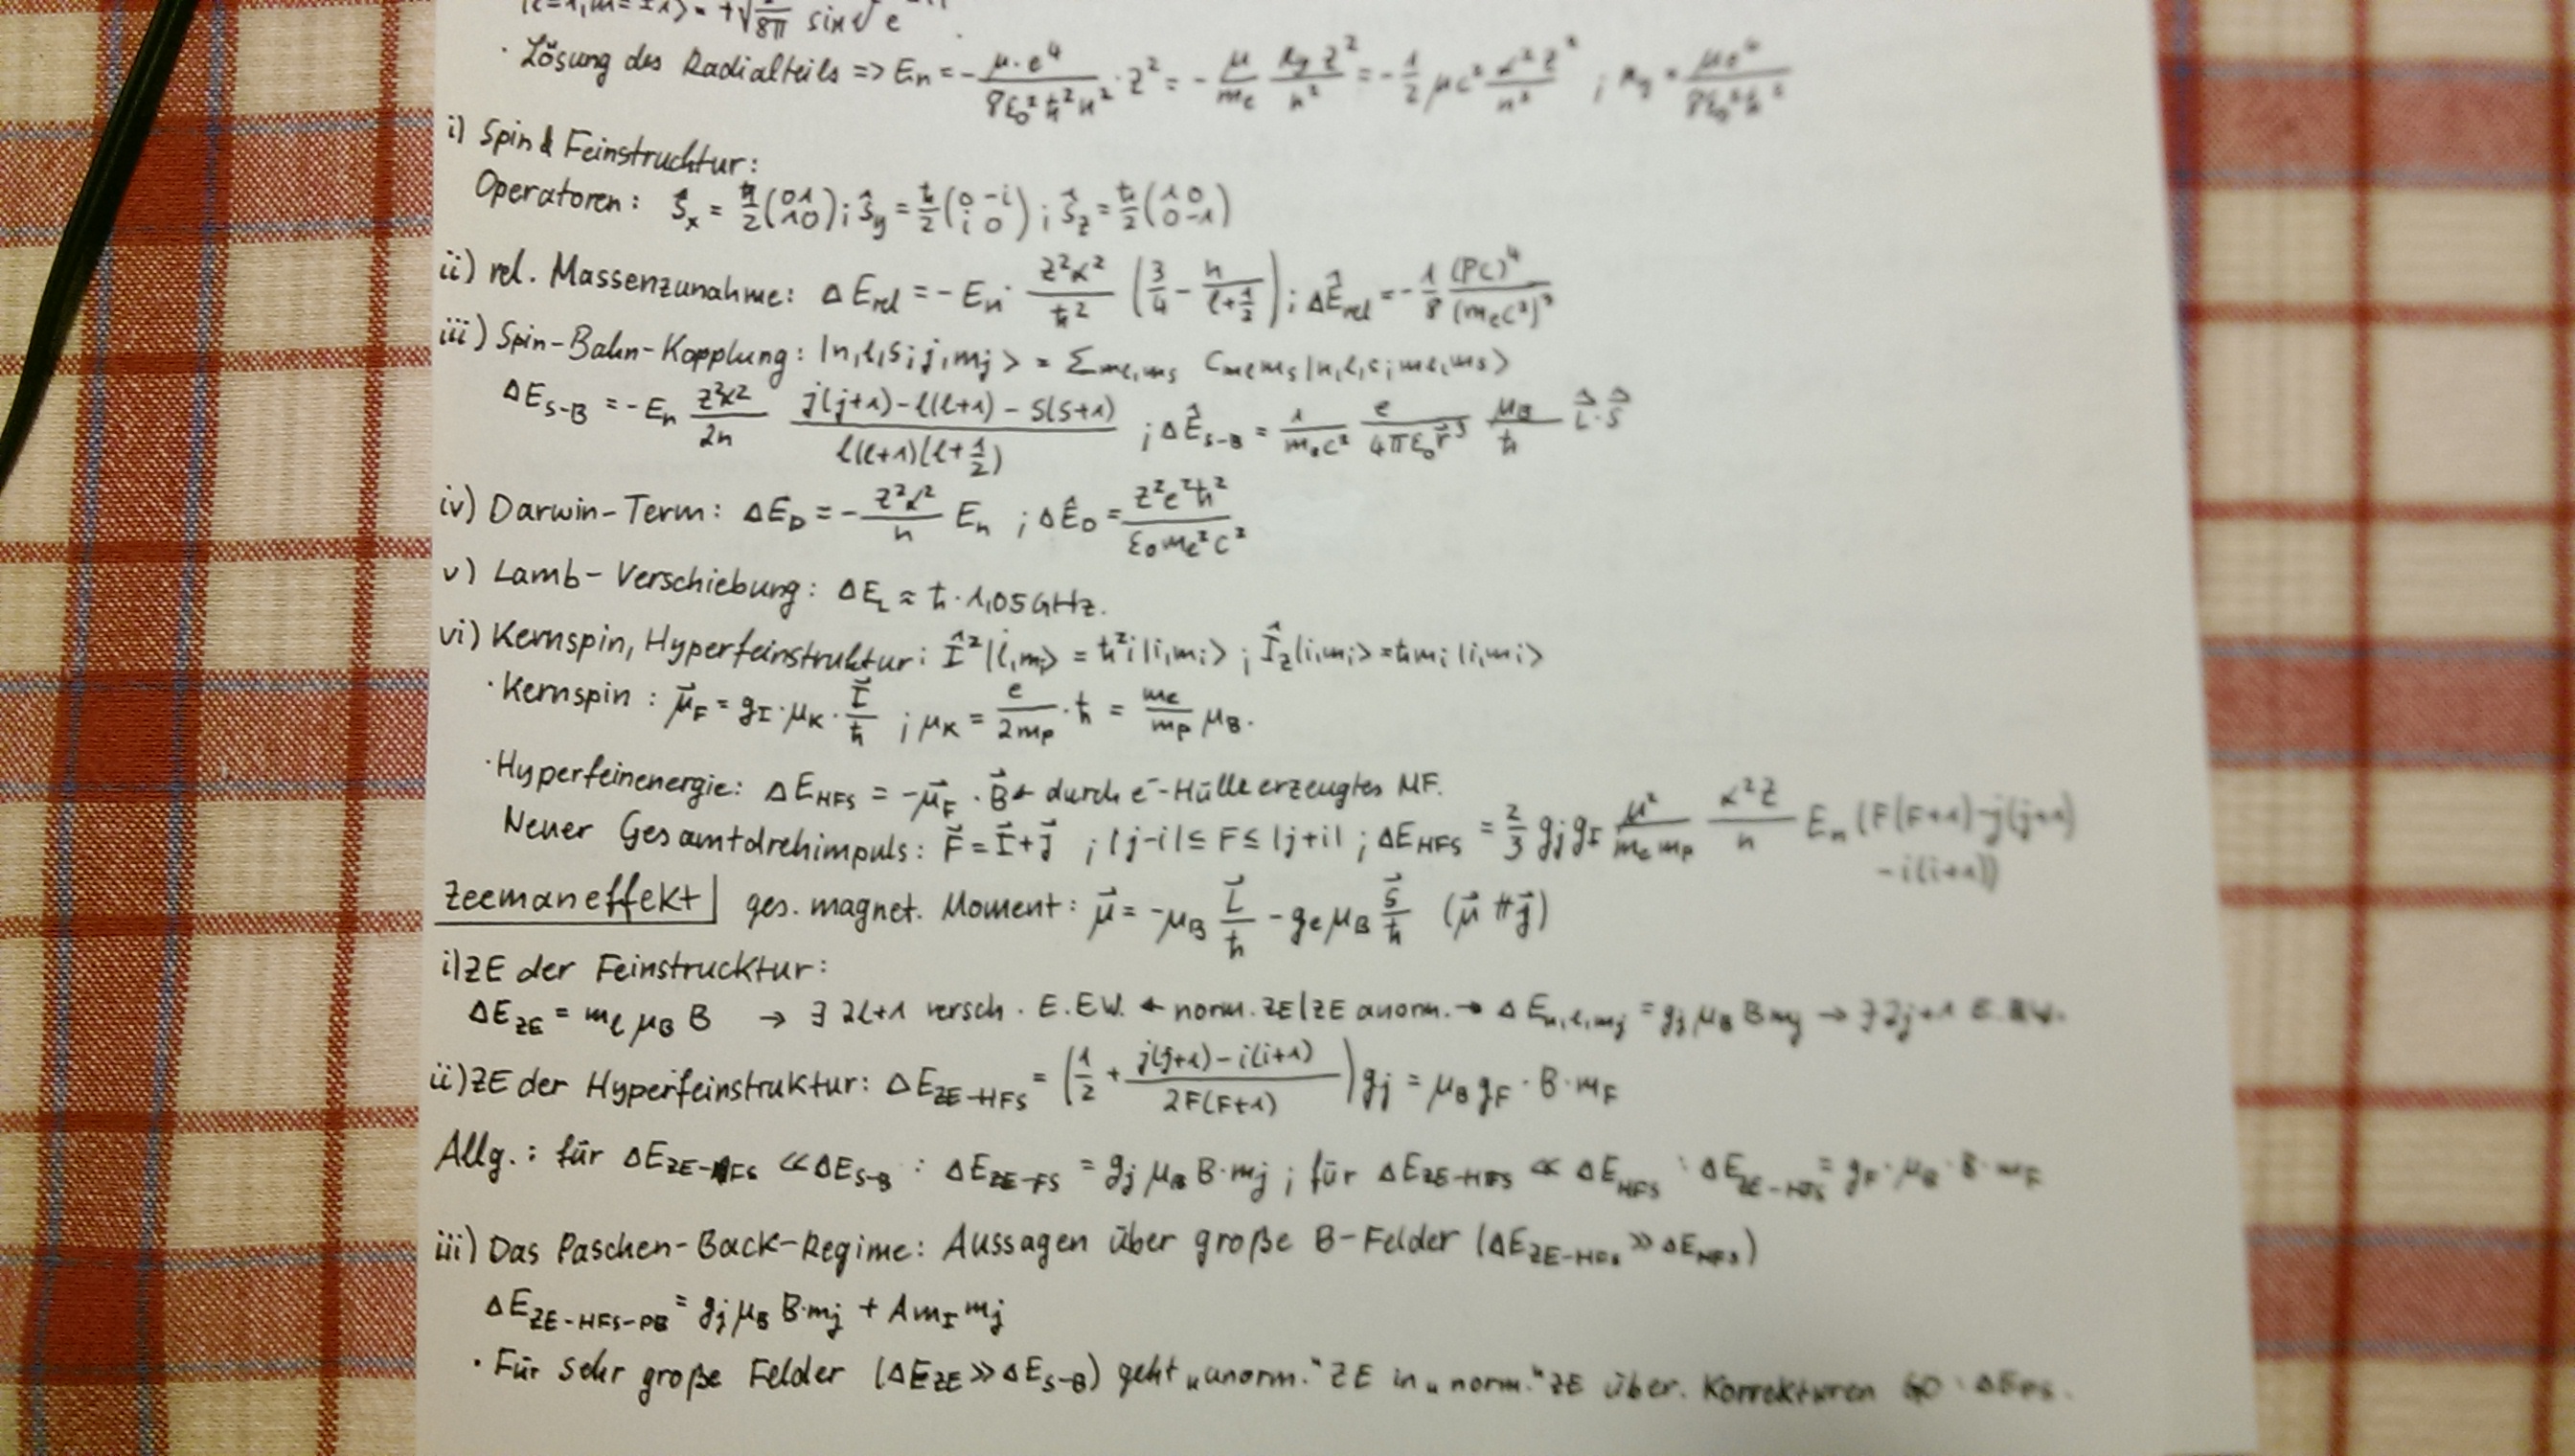 |l=1,m=±1> = ∓√(3/8π) sinϑ e
· Lösung des Radialteils => En = - μ·e⁴/(8ε₀²ħ²n²) · Z² = - μ/me Ry Z²/n² = - 1/2 μc² α²Z²/n² ; Ry = μe⁴/(8ε₀²ħ²)
i) Spin & Feinstrucktur:
Operatoren: Ŝx = ħ/2 (0 1 / 1 0) ; Ŝy = ħ/2 (0 -i / i 0) ; Ŝz = ħ/2 (1 0 / 0 -1)
ii) rel. Massenzunahme: ΔErel = - En · Z²α²/ħ² (3/4 - n/(l+1/2)) ; ΔÊrel = - 1/8 (Pc)⁴/(mec²)³
iii) Spin-Bahn-Kopplung: |n,l,s;j,mj> = Σml,ms Cmlms |n,l,s;ml,ms>
ΔES-B = - En Z²α²/2n (j(j+1) - l(l+1) - S(S+1))/(l(l+1)(l+1/2)) ; ΔÊS-B = 1/(mec²) e/(4πε₀r³) μB/ħ L̂·Ŝ
iv) Darwin-Term: ΔED = - Z²α²/n En ; ΔÊD = Z²e²ħ²/(ε₀me²c²)
v) Lamb-Verschiebung: ΔEL ≈ ħ·1,05GHz.
vi) Kernspin, Hyperfeinstruktur: Î²|i,mi> = ħ²i|i,mi> ; Îz|i,mi> = ħmi|i,mi>
· Kernspin : μ⃗F = gI·μK· I⃗/ħ ; μK = e/2mp · ħ = me/mp μB.
· Hyperfeinenergie: ΔEHFS = -μ⃗F · B⃗ ← durch e⁻-Hülle erzeugtes MF.
Neuer Gesamtdrehimpuls: F⃗ = I⃗+J⃗ ; |j-i| ≤ F ≤ |j+i| ; ΔEHFS = 2/3 gjgI μ²/(me mp) α²Z/n En (F(F+1)-j(j+1)
-i(i+1))
Zeemaneffekt| ges. magnet. Moment: μ⃗ = -μB L⃗/ħ - geμB S⃗/ħ (μ⃗ ∦ j⃗)
i) ZE der Feinstrucktur:
ΔEZE = ml μB B → ∃ 2l+1 versch. E.EW. ← norm. ZE|ZE anorm. → ΔEn,l,mj = gj μB B mj → ∃ 2j+1 E.EW.
ii) ZE der Hyperfeinstruktur: ΔEZE-HFS = (1/2 + (j(j+1) - i(i+1))/(2F(F+1))) gj = μB gF · B·mF
Allg.: für ΔEZE-FS ≪ ΔES-B : ΔEZE-FS = gj μB B·mj ; für ΔEZE-HFS ≪ ΔEHFS : ΔEZE-HFS = gF·μB·B·mF
iii) Das Paschen-Back-Regime: Aussagen über große B-Felder (ΔEZE-HFS ≫ ΔEHFS)
ΔEZE-HFS-PB = gj μB B·mj + AmI mj
· Für sehr große Felder (ΔEZE ≫ ΔES-B) geht „anorm." ZE in „norm." ZE über. Korrekturen